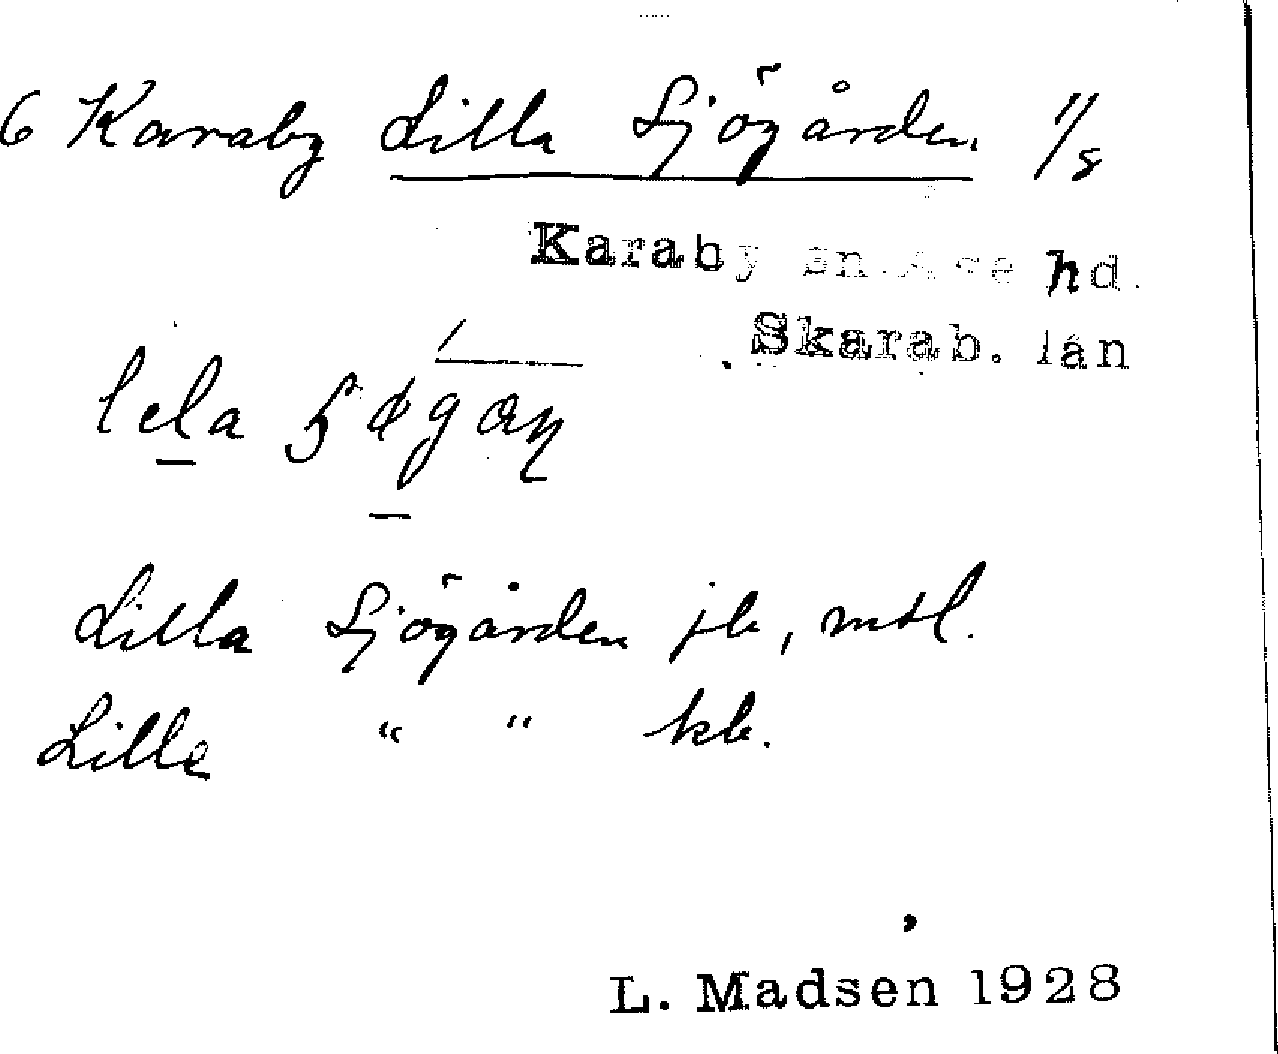 6 Karaby Lilla Sjögården 1/8
Karaby sn. Åse hd.
Skarab. län
Lilla Sjögården jb, mtl.
Lilla " " kb.
L. Madsen 1928